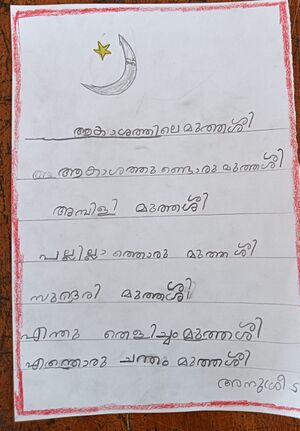 ആകാശത്തിലെ മുത്തശ്ശി
ആകാശത്തുണ്ടൊരു മുത്തശ്ശി
അമ്പിളി മുത്തശ്ശി
പല്ലില്ലാത്തൊരു മുത്തശ്ശി
സുന്ദരി മുത്തശ്ശി
എന്തു തെളിച്ചം മുത്തശ്ശി
എന്തൊരു ചന്തം മുത്തശ്ശി
അനുശ്രീ S